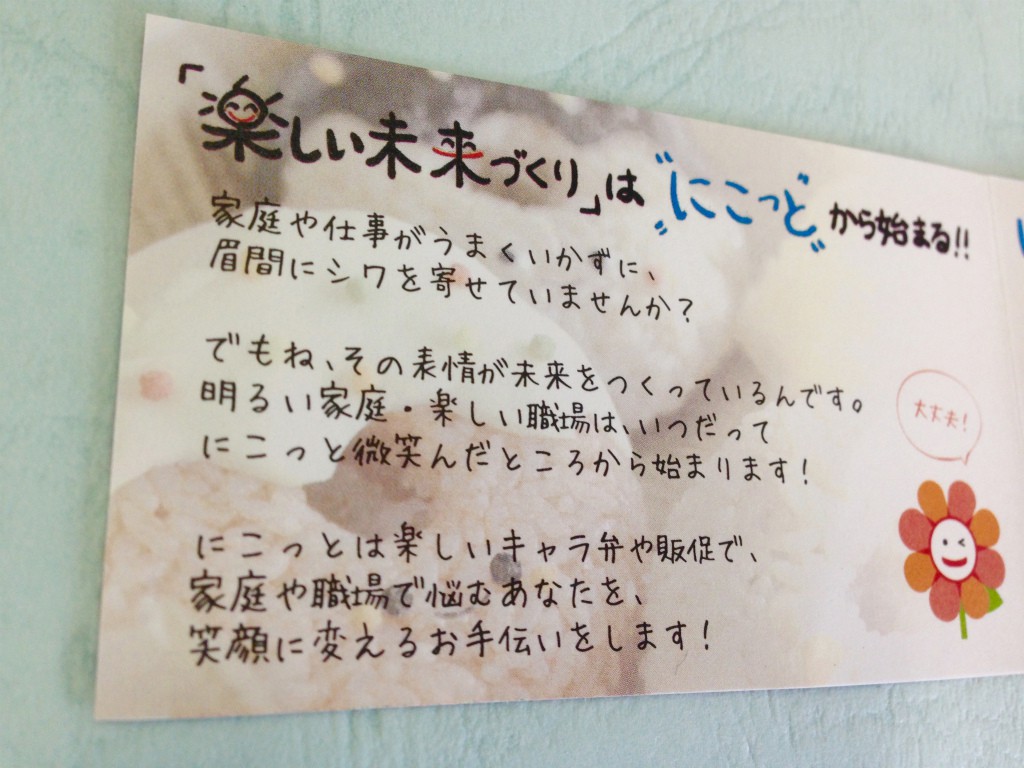 「楽しい未来づくり」は"にこっと"から始まる!!
家庭や仕事がうまくいかずに、
眉間にシワを寄せていませんか？
でもね、その表情が未来をつくっているんです。
明るい家庭・楽しい職場は、いつだって
にこっと微笑んだところから始まります！
大丈夫！
にこっとは楽しいキャラ弁や販促で、
家庭や職場で悩むあなたを、
笑顔に変えるお手伝いをします！